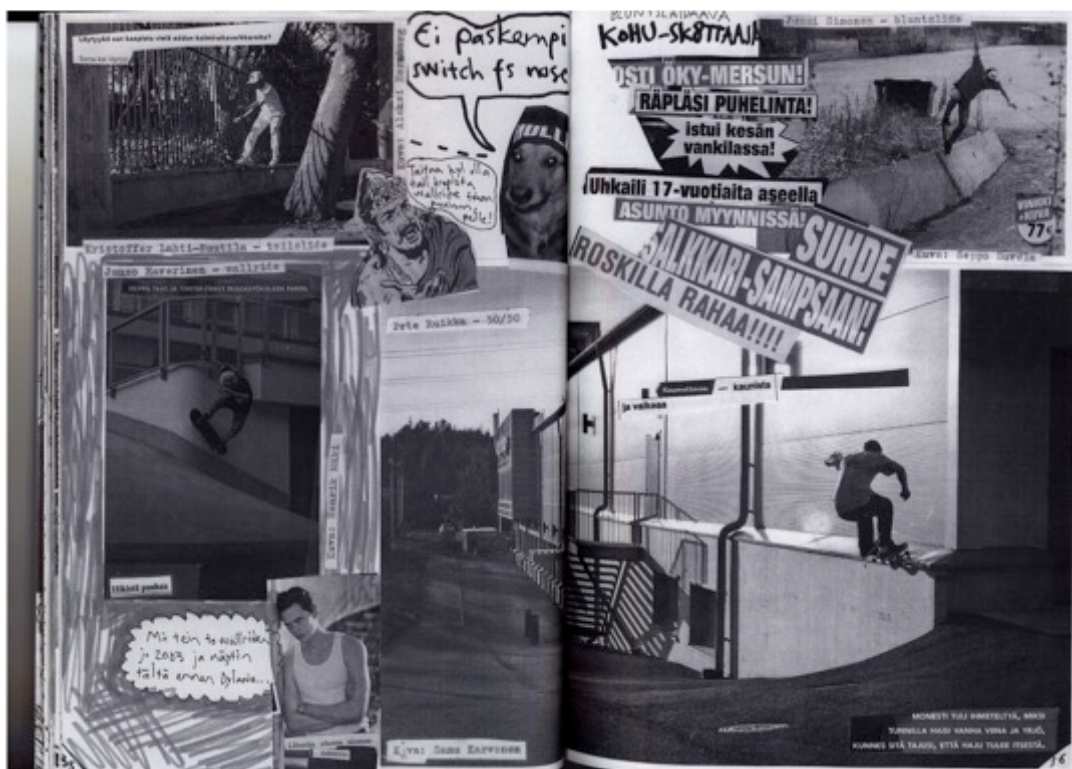 Löytyykö sun kaapista vielä
Ei paskempi
switch fs nose
Kristoffer Lahti-Nuutila - teilslide
Juuso Kaverinen - wallride
Pete Ruikka - 50/50
Kuva: Henrik
Hikistä puuhaa
Mä tein ton wallriden
jo 2003 ja näytin
tältä ennen Dylania...
Kuva: Samu Karvonen
KOHU-SK8TTAAJA
OSTI ÖKY-MERSUN!
RÄPLÄSI PUHELINTA!
istui kesän
vankilassa!
Uhkaili 17-vuotiaita aseella
ASUNTO MYYNNISSÄ!
SUHDE
SALKKARI-SAMPSAAN!
ROSKILLA RAHAA!!!!
Simonen - bluntslide
VINKKI
+KUVA
77€
Kuva: Seppo
— kaunista
ja vaikeaa
MONESTI TULI IHMETELTYÄ, MIKSI
TUNNILLA HAISI VANHA VIINA JA YRJÖ,
KUNNES SITÄ TAJUSI, ETTÄ HAJU TULEE ITSESTÄ.